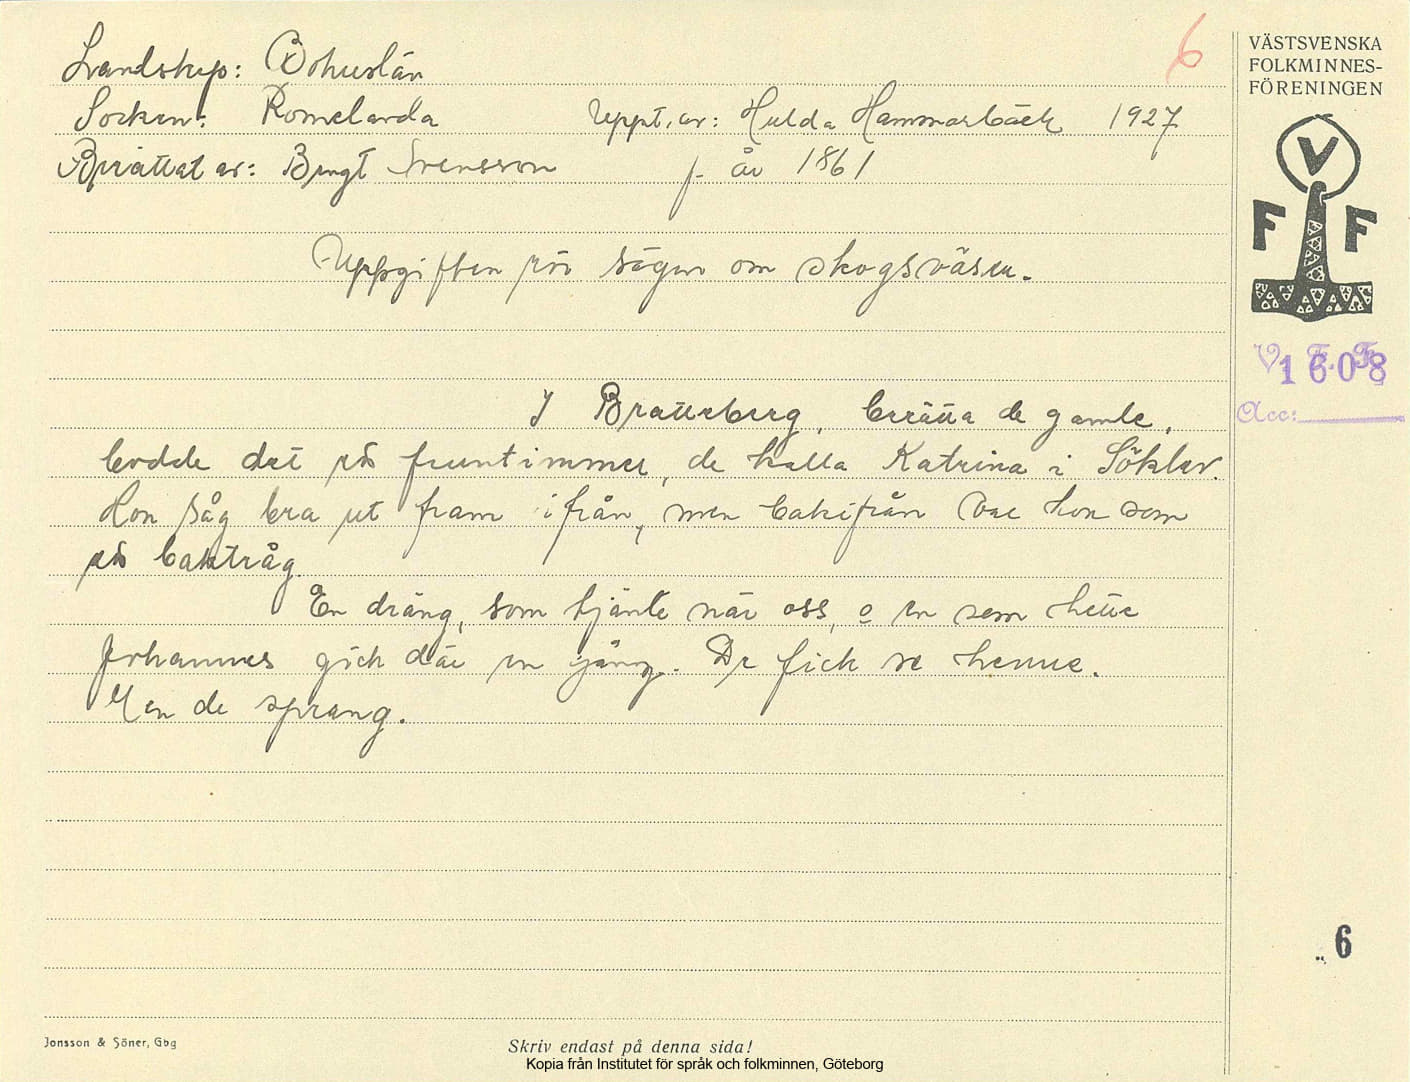 Landskap: Bohuslän
6
Socken: Romelanda Uppt. av: Hulda Hammarbäck 1927
Berättat av: Bengt Svensson f. år 1861
Uppgiften rör sägen om skogsväsen.
I Bratteberg, berätta de gamle,
bodde det ett fruntimmer, de kalla Katrina i Söklev.
Hon såg bra ut fram ifrån, men bakifrån var hon som
ett baktråg.
En dräng, som tjänte när oss, o en som hette
Johannes gick där en gång. De fick se henne.
Men de sprang.
VÄSTSVENSKA
FOLKMINNES-
FÖRENINGEN
V
F F
V. F. F.
1608
Acc:
6
Jonsson & Söner, Gbg
Skriv endast på denna sida!
Kopia från Institutet för språk och folkminnen, Göteborg